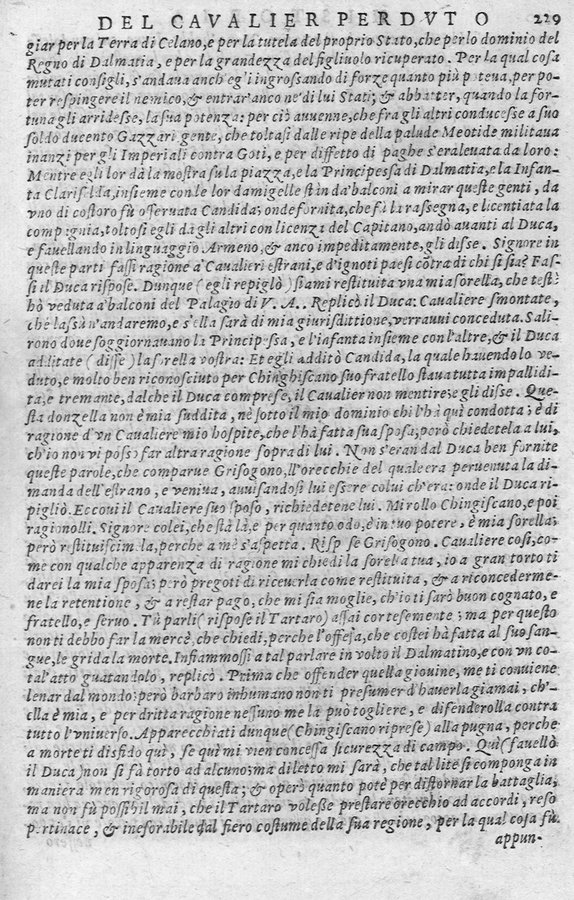 DEL CAVALIER PERDVTO 229
giar per la Terra di Celano, e per la tutela del proprio Stato, che per lo dominio del
Regno di Dalmatia, e per la grandezza del figliuolo ricuperato. Per la qual cosa
mutati consigli, s'andaua anch'egl'ingrossando di forze quanto più poteua, per po-
ter respingere il nemico, & entrar'anco ne'di lui Stati; & abbatter, quando la for-
tuna gli arridesse, la sua potenza: per ciò auuenne, che fra gli altri conducesse a suo
soldo ducento Gazzari gente, che toltasi dalle ripe della palude Meotide militaua
inanzi per gli Imperiali contra Goti, e per diffetto di paghe s'era leuata da loro:
Mentre egli lor dà la mostra su la piazza, e la Principessa di Dalmatia, e la Infan-
ta Clarisilda, insieme con le lor damigelle stan da'balconi a mirar queste genti, da
vno di costoro fù osseruata Candida; onde fornita, che fù la rassegna, e licentiata la
compagnia, toltosi egli dagli altri con licenza del Capitano, andò auanti al Duca,
e fauellando in linguaggio Armeno, & anco impeditamente, gli disse. Signore in
queste parti fassi ragione a' Caualieri estrani, e d'ignoti paesi cōtra di chi si sia? Fas-
si il Duca rispose. Dunque (egli repigliò) siami restituita vna mia sorella, che testè
hò veduta a'balconi del Palagio di V. A.. Replicò il Duca: Caualiere smontate,
chè la sù n'andaremo, e s'ella sarà di mia giurisdittione, verrauui conceduta. Sali-
rono doue soggiornauano la Principessa, e l'infanta insieme con l'altre, & il Duca
additate (disse) la sorella vostra: Et egli additò Candida, la quale hauendolo ve-
duto, e molto ben riconosciuto per Chinghiscano suo fratello staua tutta impallidi-
ta, e tremante, dal che il Duca comprese, il Caualier non mentire; egli disse. Que-
sta donzella non è mia suddita, nè sotto il mio dominio chi l'hà quì condotta; è di
ragione d'vn Caualiere mio hospite, che l'hà fatta sua sposa; però chiedetela a lui,
ch'io non vi posso far altra ragione sopra di lui. Non s'eran dal Duca ben fornite
queste parole, che comparue Grisogono, all'orecchie del quale era peruenuta la di-
manda dell'estrano, e veniua, auuisandosi lui essere colui ch'era: onde il Duca ri-
pigliò. Eccoui il Caualiere suo sposo, richiedetene lui. Mirollo Chingiscano, e poi
ragionolli. Signore colei, che stà là, e per quanto odo, è in tuo potere, è mia sorella;
però restituiscimela, perche a me s'aspetta. Rispose Grisogono. Caualiere così, co-
me con qualche apparenza di ragione mi chiedi la sorella tua, io a gran torto ti
darei la mia sposa; però pregoti di riceuerla come restituita, & a riconcederme-
ne la retentione, & a restar pago, che mi sia moglie, ch'io ti sarò buon cognato, e
fratello, e seruo. Tù parli (rispose il Tartaro) assai cortesemente; ma per questo
non ti debbo far la mercè, che chiedi, perche l'offesa, che costei hà fatta al suo san-
gue, le grida la morte. Infiammossi a tal parlare in volto il Dalmatino, e con vn co-
tal'atto guatandolo, replicò. Prima che offender quella giouine, me ti conuiene
leuar dal mondo: però barbaro inhumano non ti presumer d'hauerla giamai, ch'-
ella è mia, e per dritta ragione nessuno me la può togliere, e difenderolla contra
tutto l'vniuerso. Apparecchiati dunque (Chingiscano riprese) alla pugna, perche
a morte ti disfido quì, se quì mi vien concessa sicurezza di campo. Quì (fauellò
il Duca) non si fà torto ad alcuno; ma diletto mi sarà, che tal lite si componga in
maniera men rigorosa di questa; & operò quanto potè per distornar la battaglia;
ma non fù possibil mai, che il Tartaro volesse prestare orecchio ad accordi, reso
pertinace, & inesorabile dal fiero costume della sua regione, per la qual cosa fù
appun-